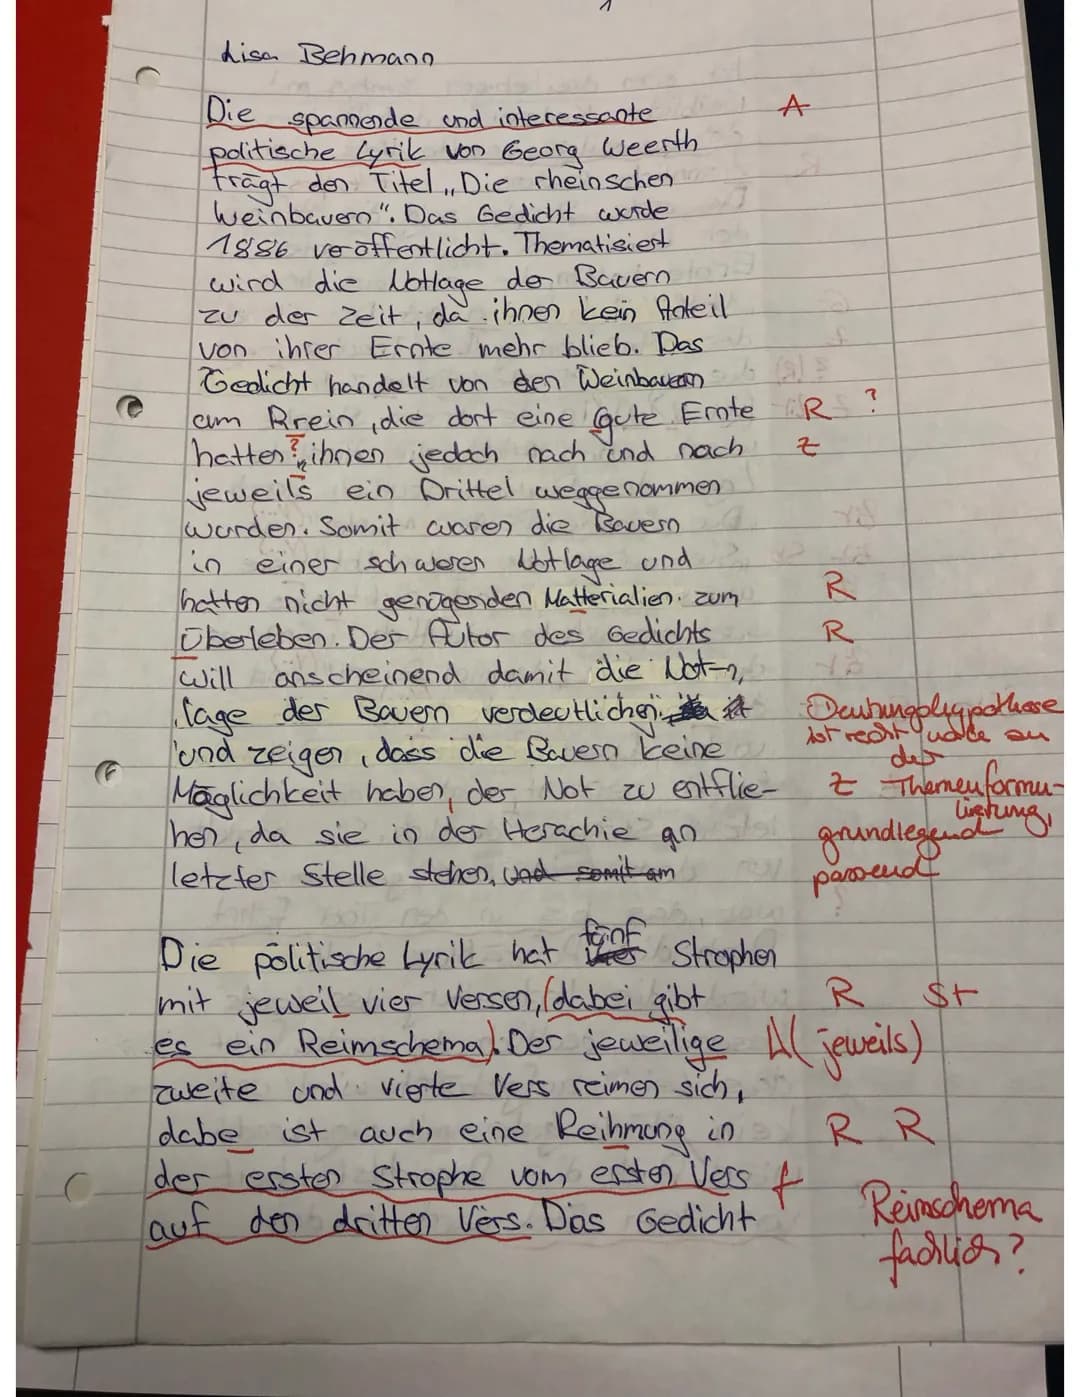 Lisa Behmann
Die spannende und interessante A
politische Lyrik von Georg Weerth
trägt den Titel „Die rheinschen
Weinbauern". Das Gedicht wurde
1886 veröffentlicht. Thematisiert
wird die Notlage der Bauern
zu der Zeit, da ihnen kein Anteil
von ihrer Ernte mehr blieb. Das
Gedicht handelt von den Weinbauern
am Rrein, die dort eine gute Ernte R ?
hatten ? ihnen jedoch nach und nach Z
jeweils ein Drittel weggenommen
wurden. Somit waren die Bauern
in einer schweren Notlage und
hatten nicht genügenden Matterialien zum R
Überleben. Der Autor des Gedichts R
will anscheinend damit die Not-
lage der Bauern verdeutlichen
und zeigen, dass die Bauern keine
Möglichkeit haben, der Not zu entflie-
hen, da sie in der Herachie an
letzter Stelle stehen, und somit am
Deutungshypothese
ist recht nahe an
der
Z Themenformu-
lierung,
grundlegend
passend
Die politische Lyrik hat fünf Strophen
mit jeweil vier Versen, (dabei gibt R St
es ein Reimschema). Der jeweilige A (jeweils)
zweite und vierte Vers reimen sich,
dabe ist auch eine Reihmung in R R
der ersten Strophe vom ersten Vers f
auf den dritten Vers. Das Gedicht
Reimschema
fachlich?